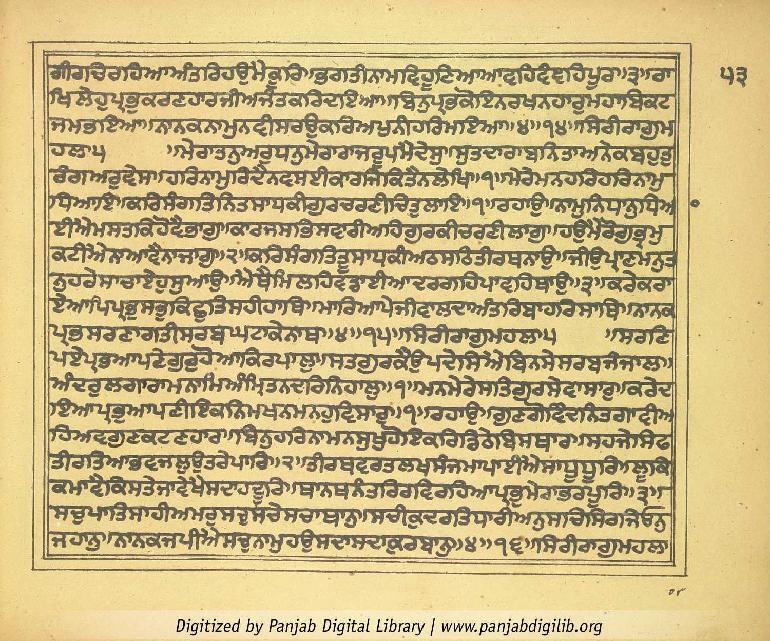 ਗੀਰਚਿਰਹਿਆਅੰਤਰਿਹਉਮੈਕੂਰਿ॥ਭਗਤੀਨਾਮਵਿਹੂਣਿਆਆਵਹਿਵੰਞਹਿਪੂਰ॥੩॥ਰਾ ੫੩
ਖਿਲੇਹੁਪ੍ਰਭੁਕਰਣਹਾਰਜੀਅਜੰਤਕਰਿਦਇਆ॥ਬਿਨੁਪ੍ਰਭਕੋਇਨਰਖਨਹਾਰੁਮਹਾਬਿਕਟ
ਜਮਭਇਆ॥ਨਾਨਕਨਾਮੁਨਵੀਸਰਉਕਰਿਅਪੁਨੀਹਰਿਮਇਆ॥੪॥੧੪॥ਸਿਰੀਰਾਗੁਮ
ਹਲਾ੫ ॥ਮੇਰਾਤਨੁਅਰੁਧਨੁਮੇਰਾਰਾਜਰੂਪਮੈਦੇਸੁ॥ਸੁਤਦਾਰਾਬਨਿਤਾਅਨੇਕਬਹੁਤੁ
ਰੰਗਅਰੁਵੇਸ॥ਹਰਿਨਾਮੁਰਿਦੈਨਵਸਈਕਾਰਜਿਕਿਤੈਨਲੇਖਿ॥੧॥ਮੇਰੇਮਨਹਰਿਹਰਿਨਾਮੁ
ਧਿਆਇ॥ਕਰਿਸੰਗਤਿਨਿਤਸਾਧਕੀਗੁਰਚਰਣੀਚਿਤੁਲਾਇ॥੧॥ਰਹਾਉ॥ਨਾਮੁਨਿਧਾਨੁਧਿਆ
ਈਐਮਸਤਕਿਹੋਵੈਭਾਗੁ॥ਕਾਰਜਸਭਿਸਵਾਰੀਅਹਿਗੁਰਕੀਚਰਣੀਲਾਗੁ॥ਹਉਮੈਰੋਗੁਭ੍ਰਮੁ
ਕਟੀਐਨਾਆਵੈਨਾਜਾਗੁ॥੨॥ਕਰਿਸੰਗਤਿਤੂਸਾਧਕੀਅਠਸਠਿਤੀਰਥਨਾਉ॥ਜੀਉਪ੍ਰਾਣਮਨੁਤ
ਨੁਹਰੇਸਾਚਾਏਹੁਸੁਆਉ॥ਐਥੈਮਿਲਹਿਵਡਾਈਆਦਰਗਹਿਪਾਵਹਿਥਾਉ॥੩॥ਕਰੇਕਰਾ
ਏਆਪਿਪ੍ਰਭੁਸਭੁਕਿਛੁਤਿਸਹੀਹਾਥਿ॥ਮਾਰਿਆਪੇਜੀਵਾਲਦਾਅੰਤਰਿਬਾਹਰਿਸਾਥਿ॥ਨਾਨਕ
ਪ੍ਰਭਸਰਣਾਗਤੀਸਰਬਘਟਾਕੇਨਾਥ॥੪॥੧੫॥ਸਿਰੀਰਾਗੁਮਹਲਾ੫ ॥ਸਰਣਿ
ਪਏਪ੍ਰਭਆਪਣੇਗੁਰੁਹੋਆਕਿਰਪਾਲੁ॥ਸਤਗੁਰਕੈਉਪਦੇਸਿਐਬਿਨਸੇਸਰਬਜੰਜਾਲ॥
ਅੰਦਰੁਲਗਾਰਾਮਨਾਮਿਅੰਮ੍ਰਿਤਨਦਰਿਨਿਹਾਲੁ॥੧॥ਮਨਮੇਰੇਸਤਿਗੁਰਸੇਵਾਸਾਰੁ॥ਕਰੇਦ
ਇਆਪ੍ਰਭੁਆਪਣੀਇਕਨਿਮਖਨਮਨਹੁਵਿਸਾਰੁ॥੧॥ਰਹਾਉ॥ਗੁਣਗੋਵਿੰਦਨਿਤਗਾਵੀਅ
ਹਿਅਵਗੁਣਕਟਣਹਾਰ॥ਬਿਨੁਹਰਿਨਾਮਨਸੁਖੁਹੋਇਕਰਿਡਿਠੇਬਿਸਥਾਰ॥ਸਹਜੇਸਿਫ
ਤੀਰਤਿਆਭਵਜਲੁਉਤਰੇਪਾਰਿ॥੨॥ਤੀਰਥਵਰਤਲਖਸੰਜਮਾਪਾਈਐਸਾਧੂਧੂਰਿ॥ਲੂਕਿ
ਕਮਾਵੈਕਿਸਤੇਜਾਵੇਖੈਸਦਾਹਦੂਰਿ॥ਥਾਨਥਨੰਤਰਿਰਵਿਰਹਿਆਪ੍ਰਭੁਮੇਰਾਭਰਪੂਰਿ॥੩॥
ਸਚੁਪਾਤਿਸਾਹੀਅਮਰੁਸਚੁਸਚੇਸਚਾਥਾਨੁ॥ਸਚੀਕੁਦਰਤਿਧਾਰੀਅਨੁਸਚਿਸਿਰਜਿਓਨੁ
ਜਹਾਨੁ॥ਨਾਨਕਜਪੀਐਸਚੁਨਾਮੁਹਉਸਦਾਸਦਾਕੁਰਬਾਨੁ॥੪॥੧੬॥ਸਿਰੀਰਾਗੁਮਹਲਾ
Digitized by Panjab Digital Library | www.panjabdigilib.org